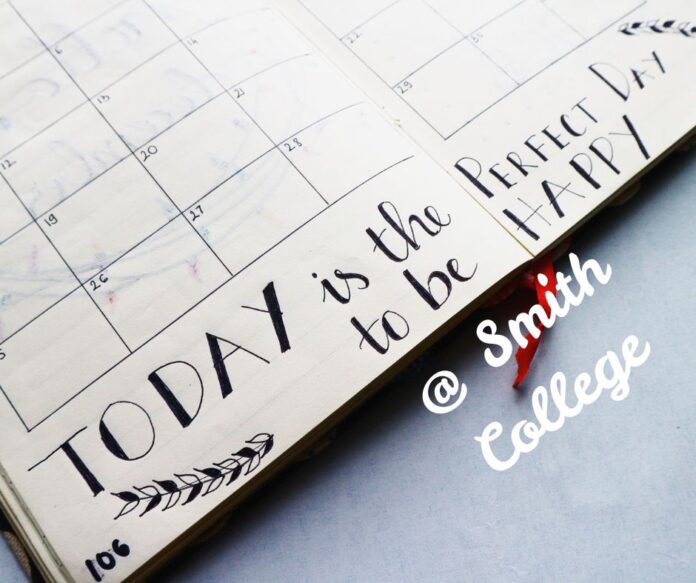 6
12 13 14
19 20 21
5 26 27 28
22
29 30
TODAY is the PERFECT DAY
to be HAPPY
106
@ Smith
College